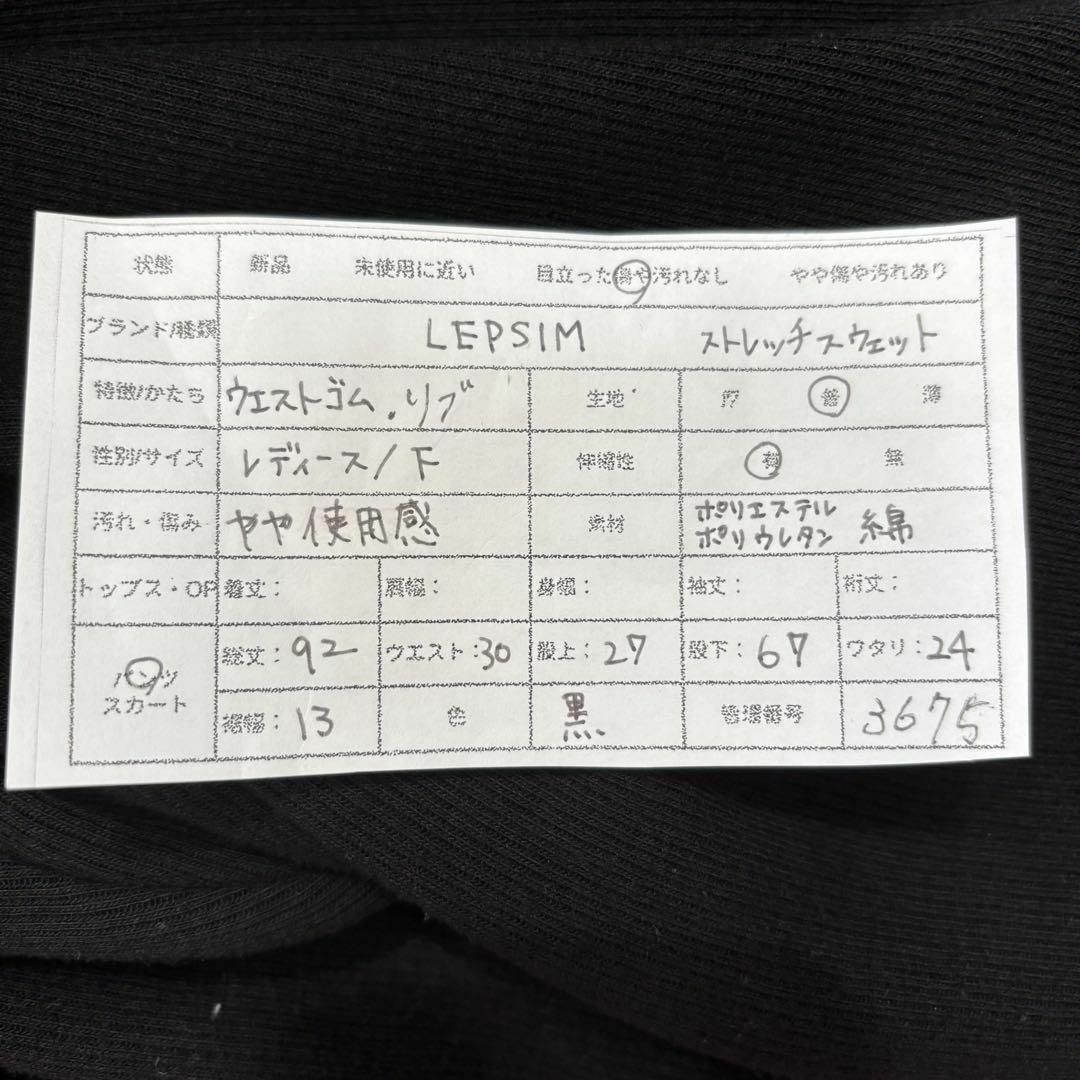 状態 新品 未使用に近い 目立った傷や汚れなし やや傷や汚れあり
ブランド/種類 LEPSIM ストレッチスウェット
特徴/かたち ウエストゴム.リブ 生地 厚 普 薄
性別/サイズ レディース/F 伸縮性 有 無
汚れ・傷み やや使用感 素材 ポリエステル ポリウレタン 綿
トップス・OP 着丈: 肩幅: 身幅: 袖丈: 裄丈:
パンツ スカート 総丈:92 ウエスト:30 股上:27 股下:67 ワタリ:24
裾幅:13 色 黒 管理番号 3675